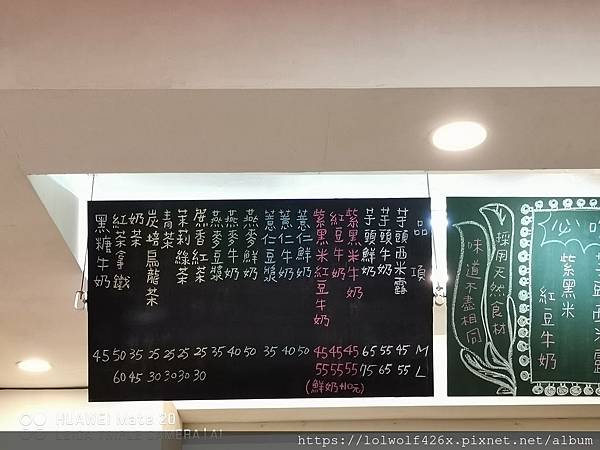 品項 M L
芋頭西米露 45 55
芋頭牛奶 55 65
芋頭鮮奶 65 75
紫黑米牛奶 45 55
紅豆牛奶 45 55
紫黑米紅豆牛奶 45 55
(鮮奶+10元)
薏仁鮮奶 50
薏仁牛奶 40
薏仁豆漿 35
燕麥鮮奶 50
燕麥牛奶 40
燕麥豆漿 35
蔗香紅茶 25 30
茉莉綠茶 25 30
青茶 25 30
炭焙烏龍茶 25 30
奶茶 35 45
紅茶拿鐵 50 60
黑糖牛奶 45
必吃
紫黑米
紅豆牛奶
採用天然食材
味道不盡相同
HUAWEI Mate 20
LEICA TRIPLE CAMERA | AI
https://lolwolf426x.pixnet.net/album